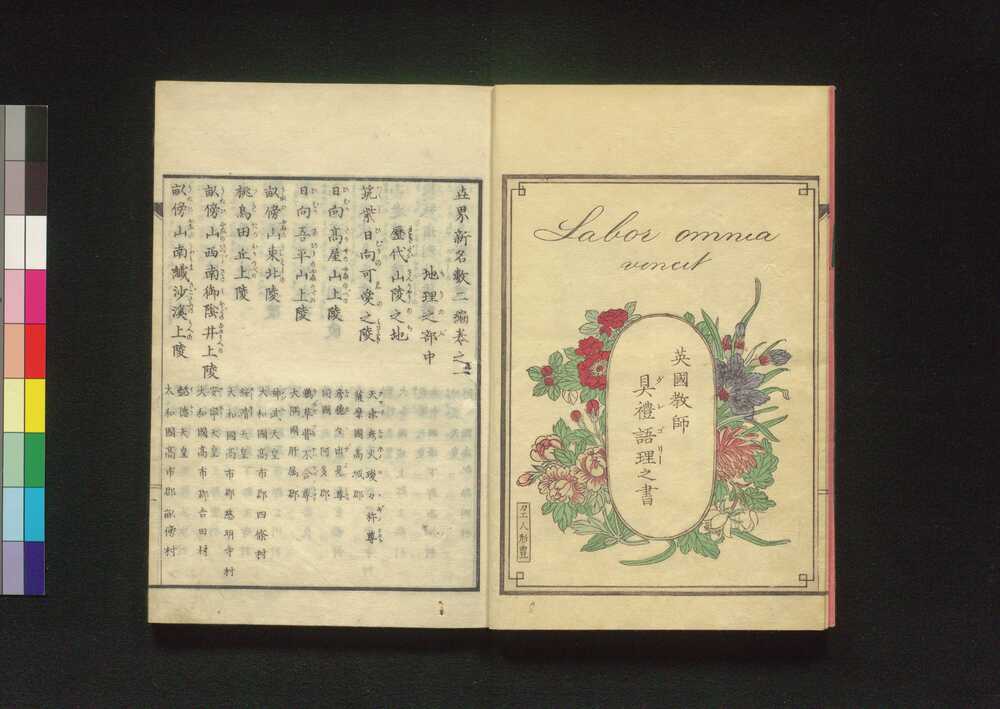 Labor omnia
vincit
英國教師
具禮語理之書
グレゴリー
工人彫豊
世界新名数二編巻之一
地理之部中
歴代山陵之地
筑紫日向可愛之陵
日向高屋山上陵
日向吾平山上陵
畝傍山東北陵
桃鳥田丘上陵
畝傍山西南御陰井上陵
畝傍山南繊沙溪上陵
天津彦火瓊々杵尊
薩摩國高城郡
彦穂々出見尊
同國阿多郡
鸕鶿草葺不合尊
大隅國肝属郡
神武天皇
大和國高市郡四條村
綏靖天皇
大和國高市郡慈明寺村
安寧天皇
大和國高市郡吉田村
懿徳天皇
大和國高市郡畝傍村